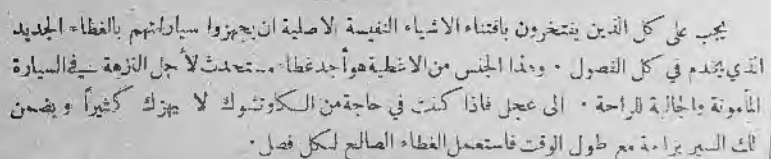 يجب على كل الذين يفتخرون باقتناء الاشياء النفيسة الاصلية ان يجهزوا سياراتهم بالغطاء الجديد
الذي يخدم في كل الفصول • وهذا الجنس من الاغطية هو أجد غطاء مستحدث لأجل النزهة في السيارة
المأمونة والجالبة للراحة • الى عجل فاذا كنت في حاجة من الكاوتشوك لا يهزك كثيراً ويضمن
لك السير براحة مع طول الوقت فاستعمل الغطاء الصالح لكل فصل •